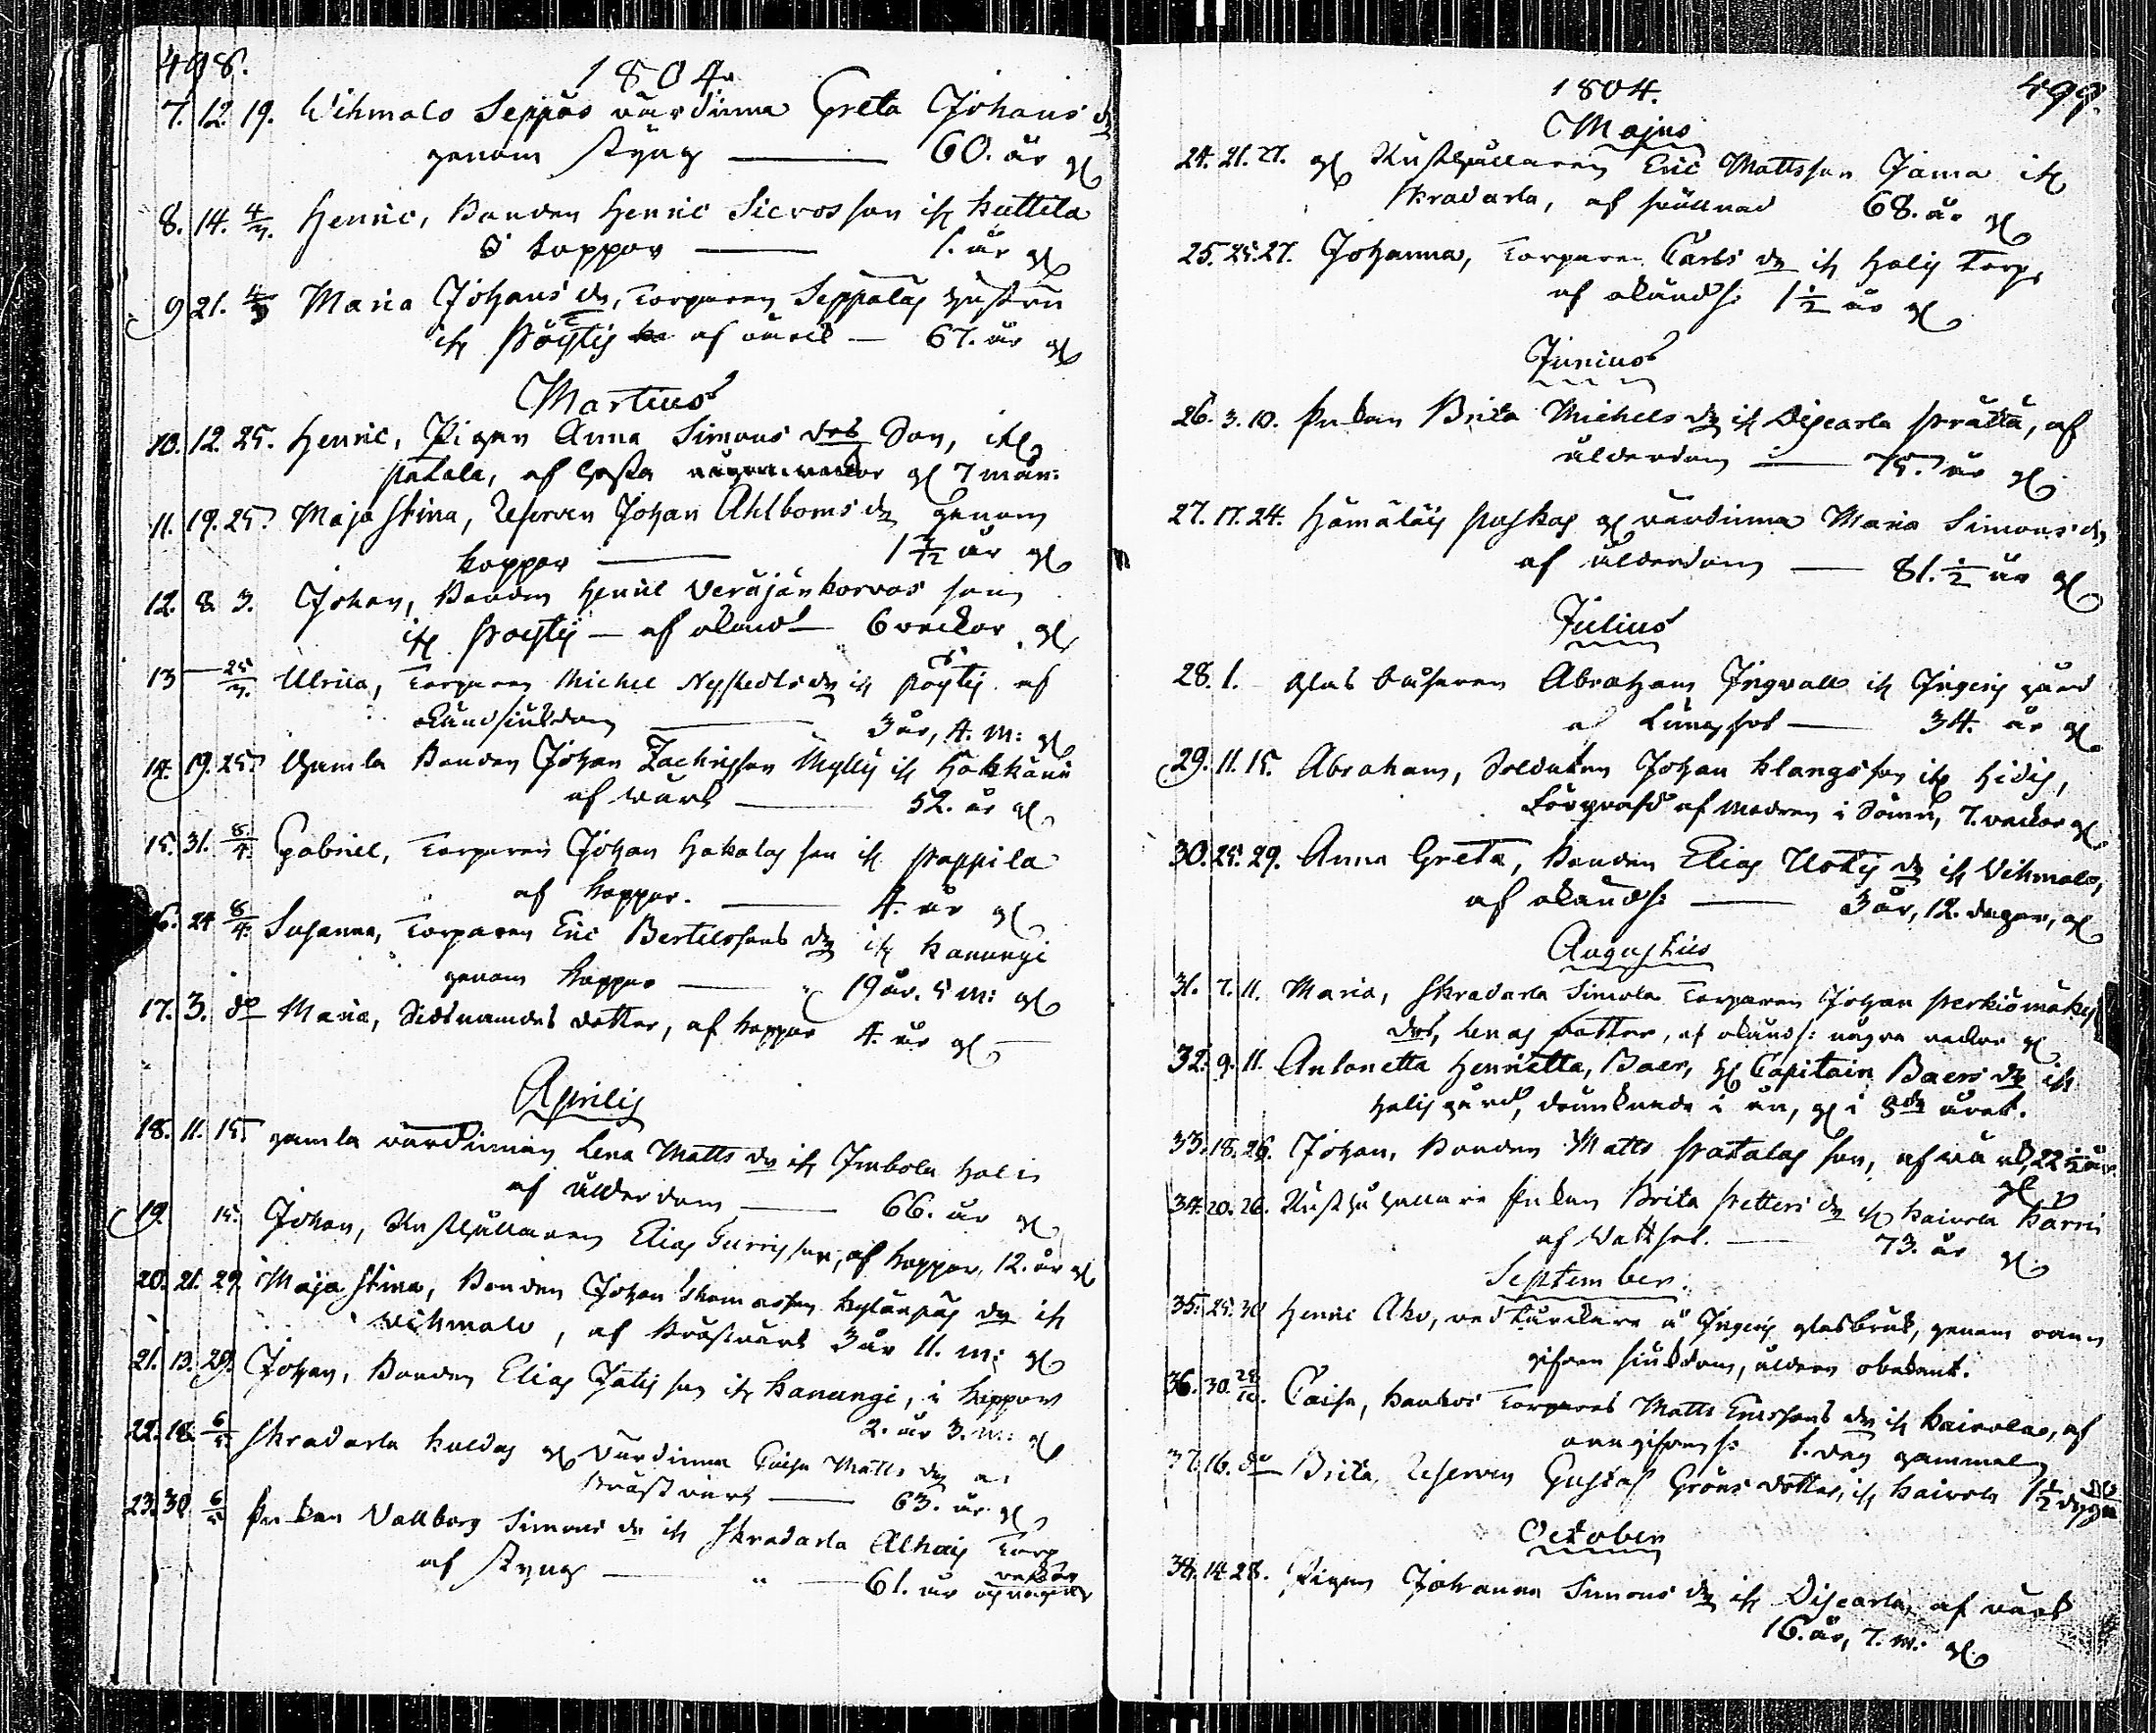 498.
1804.
7. 12. 19. Wihmalo Seppäs värdinna Greta Johans dr
genom styng — 60. år gl
8. 14. 4/4. Henric, Bonden Henric Sicvos son ifr Kuttila
i koppor — 1. år gl
9 21. Maria Johans dr, Torparen Seppäläs hustru
ifr Pöytis af värk — 67. år gl
Martius
10. 12. 25. Henric, Pigan Anna Simons drs Son, ifr
Patala, af hosta gl 7 mån:
11. 19. 25. Maja Stina, Reserven Johan Ahlboms dr genom
koppor — år gl
12. 8. 3. Johan, Bonden Henric Veräjänkorvas son
ifr Pöytis — af okänd — 6 veckor gl
13 — 25/4. Ulrica, Torparen Michel Nystedts dr ifr Pöytis af
okänd siukdom — 3 år, 4. m: gl
14. 19. 25. Gamla Bonden Johan Zachrisson Mylly ifr Hakkäni
af värk — 52. år gl
15. 31. 8/4. Gabriel, Torparen Johan Hakalas son ifr Pappila
af koppor. — 4. år gl
16. 24 8/4. Susanna, Torparen Eric Bertilssons dr ifr Kanungi
genom koppor — 19 år. 5 m: gl
17. 3. do Maria, Sidstnämdes dotter, af koppor 4. år gl —
Aprilis
18. 11. 15. gamla värdinnan Lena Matts dr ifr Imbola Halis
af ålderdom — 66. år gl
19. 15. Johan, Rusthållaren Elias son, af koppor, 12. år gl
20. 21. 29. Maja Stina, Bonden Johan Thomasson Kylänpäs dr ifr
Wihmalo, af bröstvärk 3 år 11. m: gl
21. 13. 29. Johan, Bonden Elias Jatis son ifr Kanungi, i koppor
2. år 3. m: gl
22. 18. 6/5. Skradarla Kuldas gl Värdinna Caisa Matts dr af
bröstvärk — 63. år gl
23. 30. 6/5 Enkan Vallborg Simons dr ifr Skradarla Alhais Torp
af styng — 61. år
499.
1804.
Majus
24. 21. 27. gl Rusthållaren Eric Mattsson Jama ifr
Skradarla, af svullnad 68. år gl
25. 25. 27. Johanna, Torparen Carls dr ifr Halis Torp,
af okänd s: 1 1/2 år gl
Junius
26. 3. 10. Enkan Brita Michels dr ifr Discarla Prättä, af
ålderdom — 75. år gl.
27. 17. 24. Hämäläis Paskas gl värdinna Maria Simons dr,
af ålderdom — 81. 1/2 år gl
Julius
28. 1. Glas blåsaren Abraham Ingvall ifr Ingeris gård
af Lungsot — 34. år gl
29. 11. 15. Abraham, Soldaten Johan Klangs son ifr Hidis,
förqväfd af modren i Sömn, 7. veckor gl
30. 25. 29. Anna Greta, Bonden Elias Uotis dr ifr Vihmalo,
af okänd s: — 3 år, 12. dagar, gl
Augustus
31. 7. 11. Maria, Skradarla Simola Torparen Johan Perkiömäkis
drs, Lenas dotter, af okänd s: några veckor gl
32. 9. 11. Antonetta Henrietta, Baer, H Capitain Baers dr ifr
Halis gård, drunknade i ån, gl i 8de året.
33. 18. 26. Johan, Bonden Matts Patalas son, af värk, 22 1/2 år
gl
34. 20. 26. Rusthållare Enkan Brita Petters dr ifr Kaivola Karri
af Vattsot. — 73. år gl.
September.
35. 25. 30 Henric Aho, vedkörckare å Ingeris glasbruk, genom oann
gifven siukdom, åldern obekant.
36. 30. 28/10. Caisa, Torparens Matts Ericssons dr ifr Kaivolas, af
oangifven s: 1. dag gammal
37. 16. do Brita, Reserven Gustaf Gröns dotter, ifr Kaivola 1 1/2 dygn
October
38. 14. 28. Pigan Johanna Simons dr ifr Discarla, af värk
16. år, 7. m: gl.